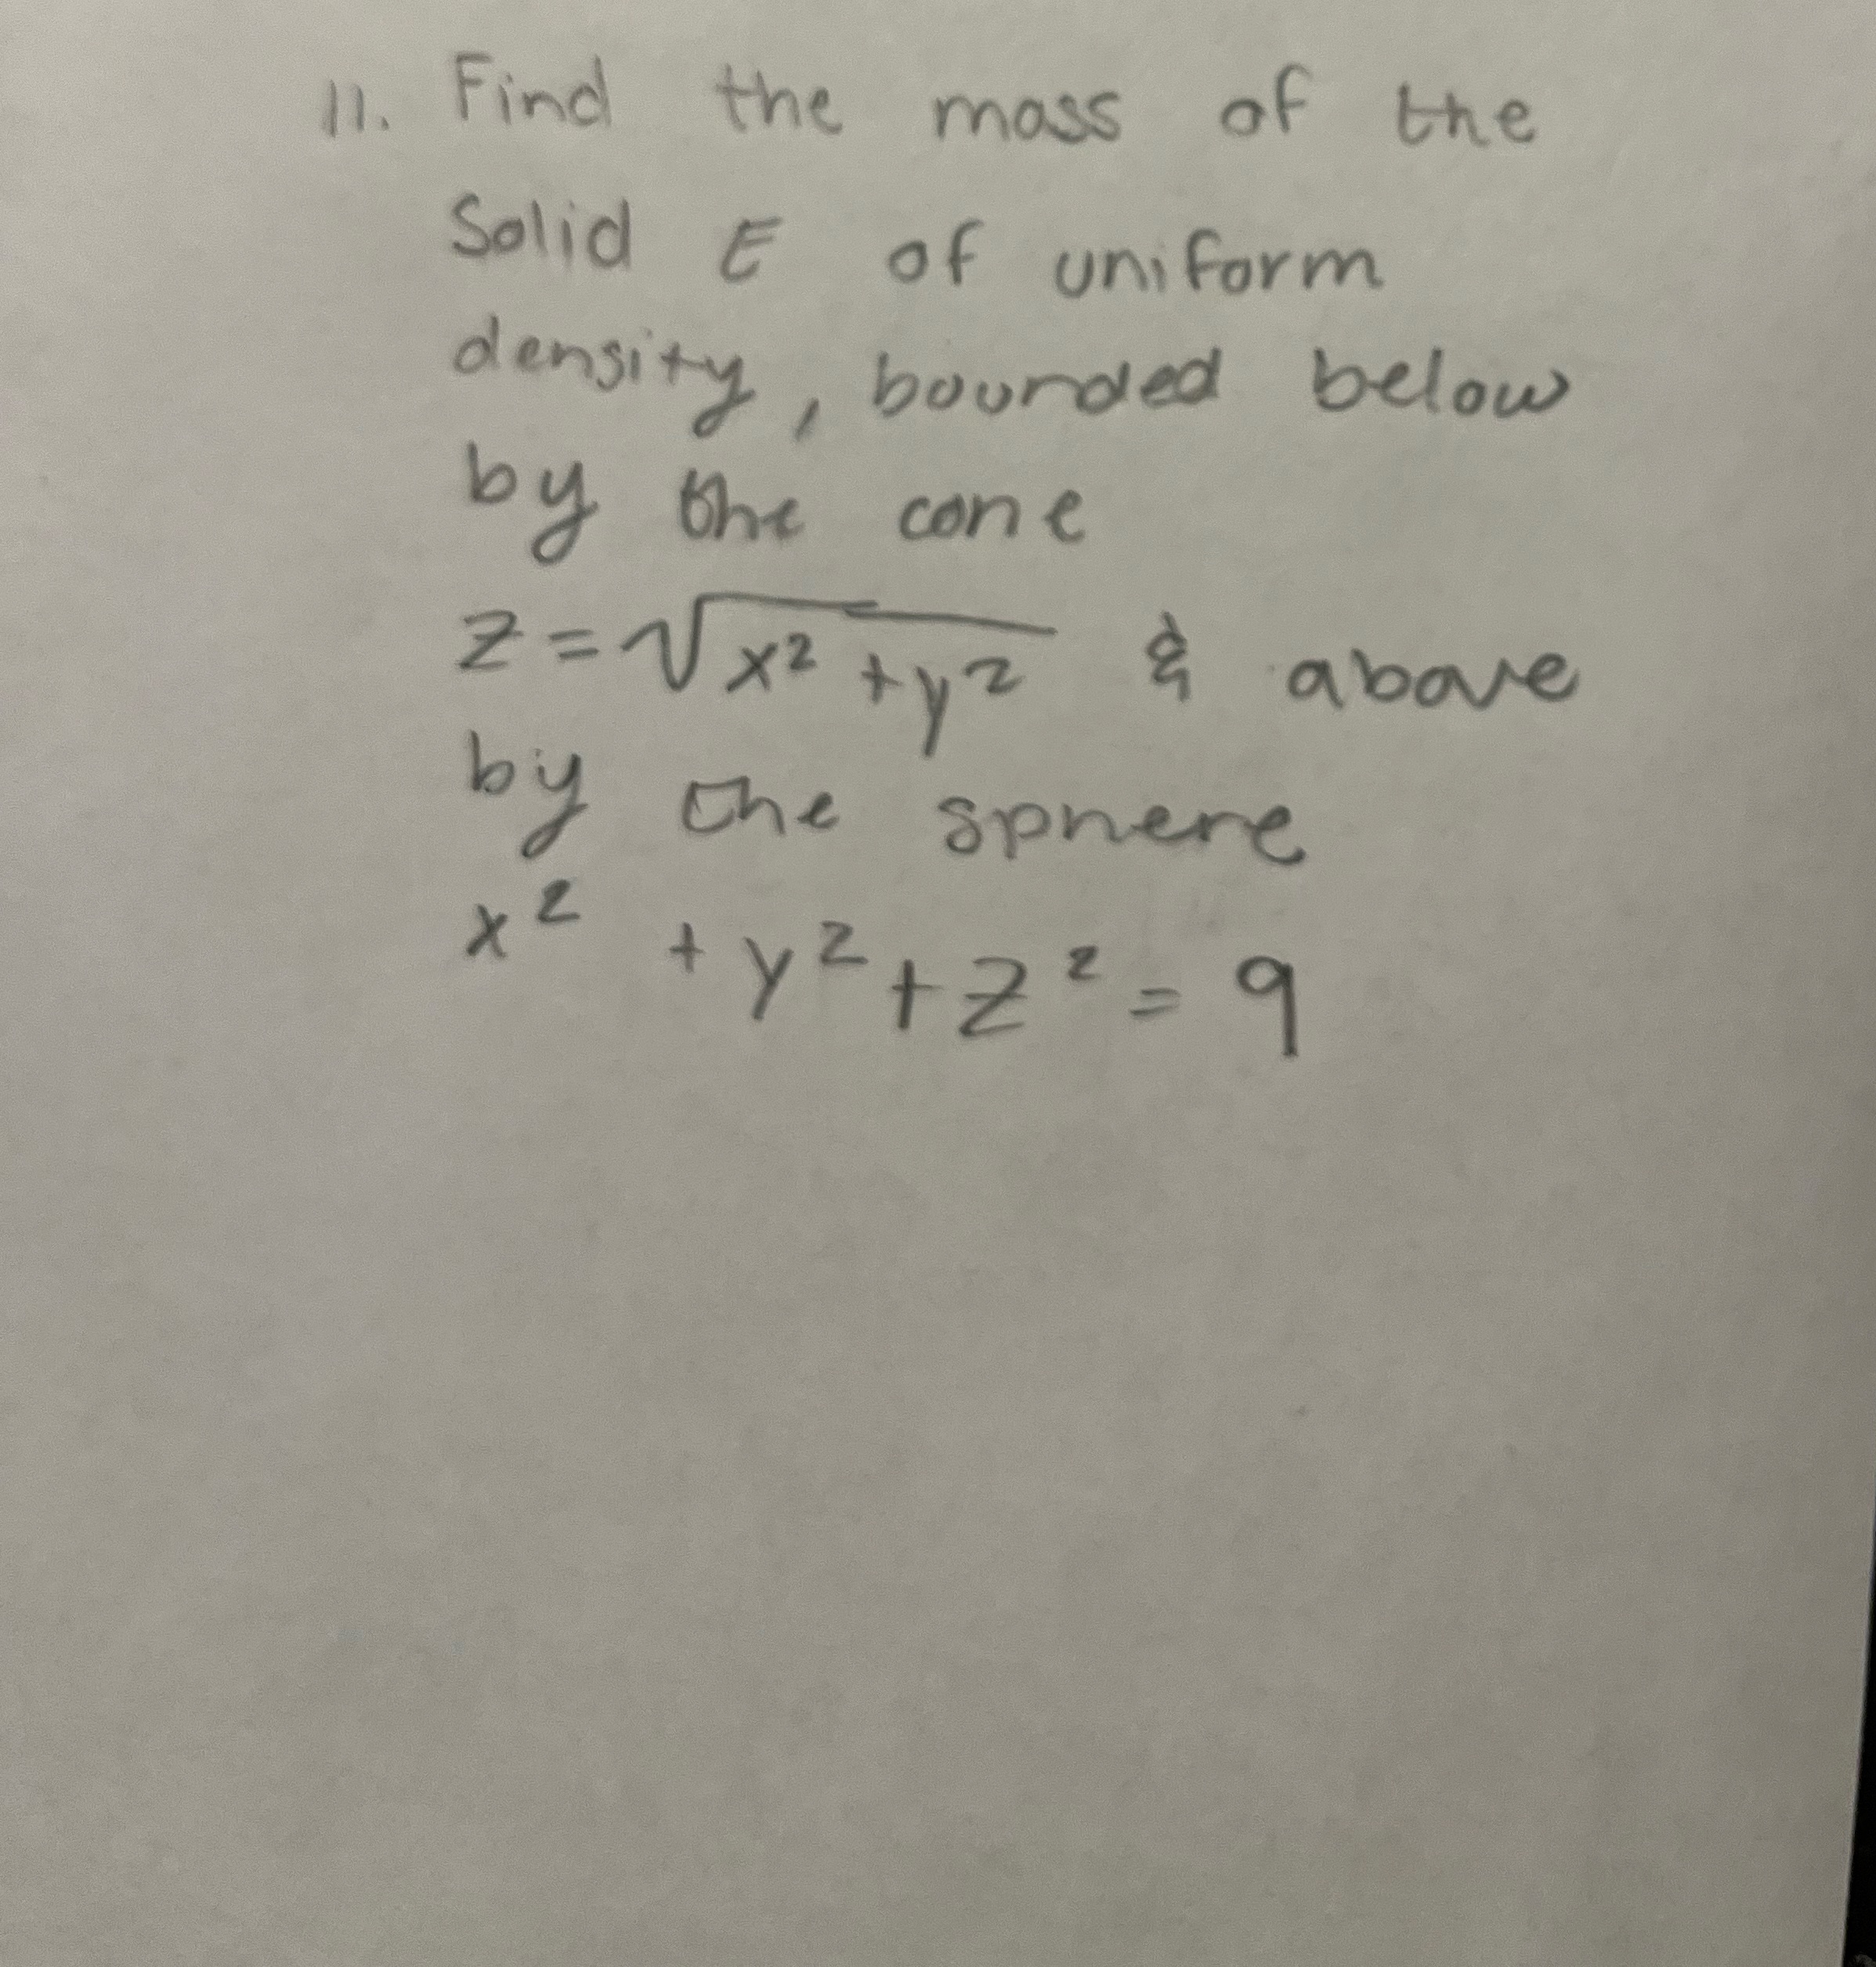 11. Find the mass of the
Solid E of uniform
density, bounded below
by the cone
z = √x² + y² & above
by the sphere
x² + y² + z² = 9